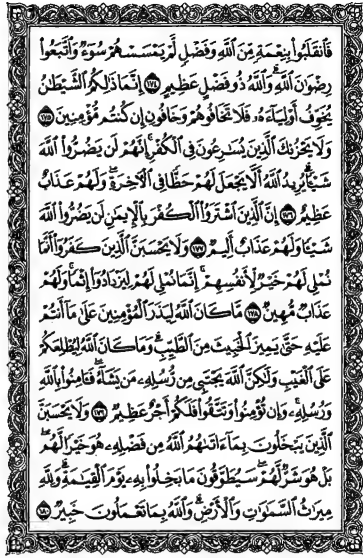 فَٱنقَلَبُوا۟ بِنِعْمَةٍ مِّنَ ٱللَّهِ وَفَضْلٍ لَّمْ يَمْسَسْهُمْ سُوٓءٌ وَٱتَّبَعُوا۟
رِضْوَٰنَ ٱللَّهِ ۗ وَٱللَّهُ ذُو فَضْلٍ عَظِيمٍ ١٧٤ إِنَّمَا ذَٰلِكُمُ ٱلشَّيْطَٰنُ
يُخَوِّفُ أَوْلِيَآءَهُۥ فَلَا تَخَافُوهُمْ وَخَافُونِ إِن كُنتُم مُّؤْمِنِينَ ١٧٥
وَلَا يَحْزُنكَ ٱلَّذِينَ يُسَٰرِعُونَ فِى ٱلْكُفْرِ ۚ إِنَّهُمْ لَن يَضُرُّوا۟ ٱللَّهَ
شَيْـًٔا ۗ يُرِيدُ ٱللَّهُ أَلَّا يَجْعَلَ لَهُمْ حَظًّا فِى ٱلْءَاخِرَةِ ۖ وَلَهُمْ عَذَابٌ
عَظِيمٌ ١٧٦ إِنَّ ٱلَّذِينَ ٱشْتَرَوُا۟ ٱلْكُفْرَ بِٱلْإِيمَٰنِ لَن يَضُرُّوا۟ ٱللَّهَ
شَيْـًٔا وَلَهُمْ عَذَابٌ أَلِيمٌ ١٧٧ وَلَا يَحْسَبَنَّ ٱلَّذِينَ كَفَرُوٓا۟ أَنَّمَا
نُمْلِى لَهُمْ خَيْرٌ لِّأَنفُسِهِمْ ۚ إِنَّمَا نُمْلِى لَهُمْ لِيَزْدَادُوٓا۟ إِثْمًا ۚ وَلَهُمْ
عَذَابٌ مُّهِينٌ ١٧٨ مَّا كَانَ ٱللَّهُ لِيَذَرَ ٱلْمُؤْمِنِينَ عَلَىٰ مَآ أَنتُمْ
عَلَيْهِ حَتَّىٰ يَمِيزَ ٱلْخَبِيثَ مِنَ ٱلطَّيِّبِ ۗ وَمَا كَانَ ٱللَّهُ لِيُطْلِعَكُمْ
عَلَى ٱلْغَيْبِ وَلَٰكِنَّ ٱللَّهَ يَجْتَبِى مِن رُّسُلِهِۦ مَن يَشَآءُ ۖ فَـَٔامِنُوا۟ بِٱللَّهِ
وَرُسُلِهِۦ ۚ وَإِن تُؤْمِنُوا۟ وَتَتَّقُوا۟ فَلَكُمْ أَجْرٌ عَظِيمٌ ١٧٩ وَلَا يَحْسَبَنَّ
ٱلَّذِينَ يَبْخَلُونَ بِمَآ ءَاتَىٰهُمُ ٱللَّهُ مِن فَضْلِهِۦ هُوَ خَيْرًا لَّهُم ۖ
بَلْ هُوَ شَرٌّ لَّهُمْ ۖ سَيُطَوَّقُونَ مَا بَخِلُوا۟ بِهِۦ يَوْمَ ٱلْقِيَٰمَةِ ۗ وَلِلَّهِ
مِيرَٰثُ ٱلسَّمَٰوَٰتِ وَٱلْأَرْضِ ۗ وَٱللَّهُ بِمَا تَعْمَلُونَ خَبِيرٌ ١٨٠